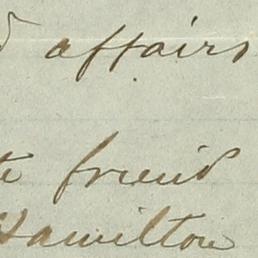 affairs
friend
Hamilton